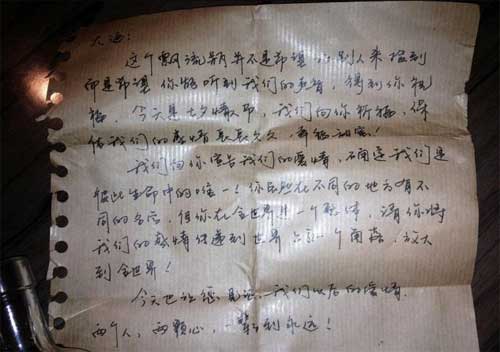 大海:
这个飘流瓶并不是希望 别人来捡到
而是希望你能听到我们的声音,得到你祝
福,今天是七夕 ,我们向你祈福,保
佑我们的感情长长久久,幸福 !
我们向你宣告我们的爱情,不用 我们是
彼此生命中的唯一!你虽然在不同的地方有不
同的名字,但你在全世界是一个整体,请你将
我们的感情传递到世界 一个角落,放大
到全世界!
今天也让您见证 我们以后的爱情.
两个人,两颗心,一辈到永远!